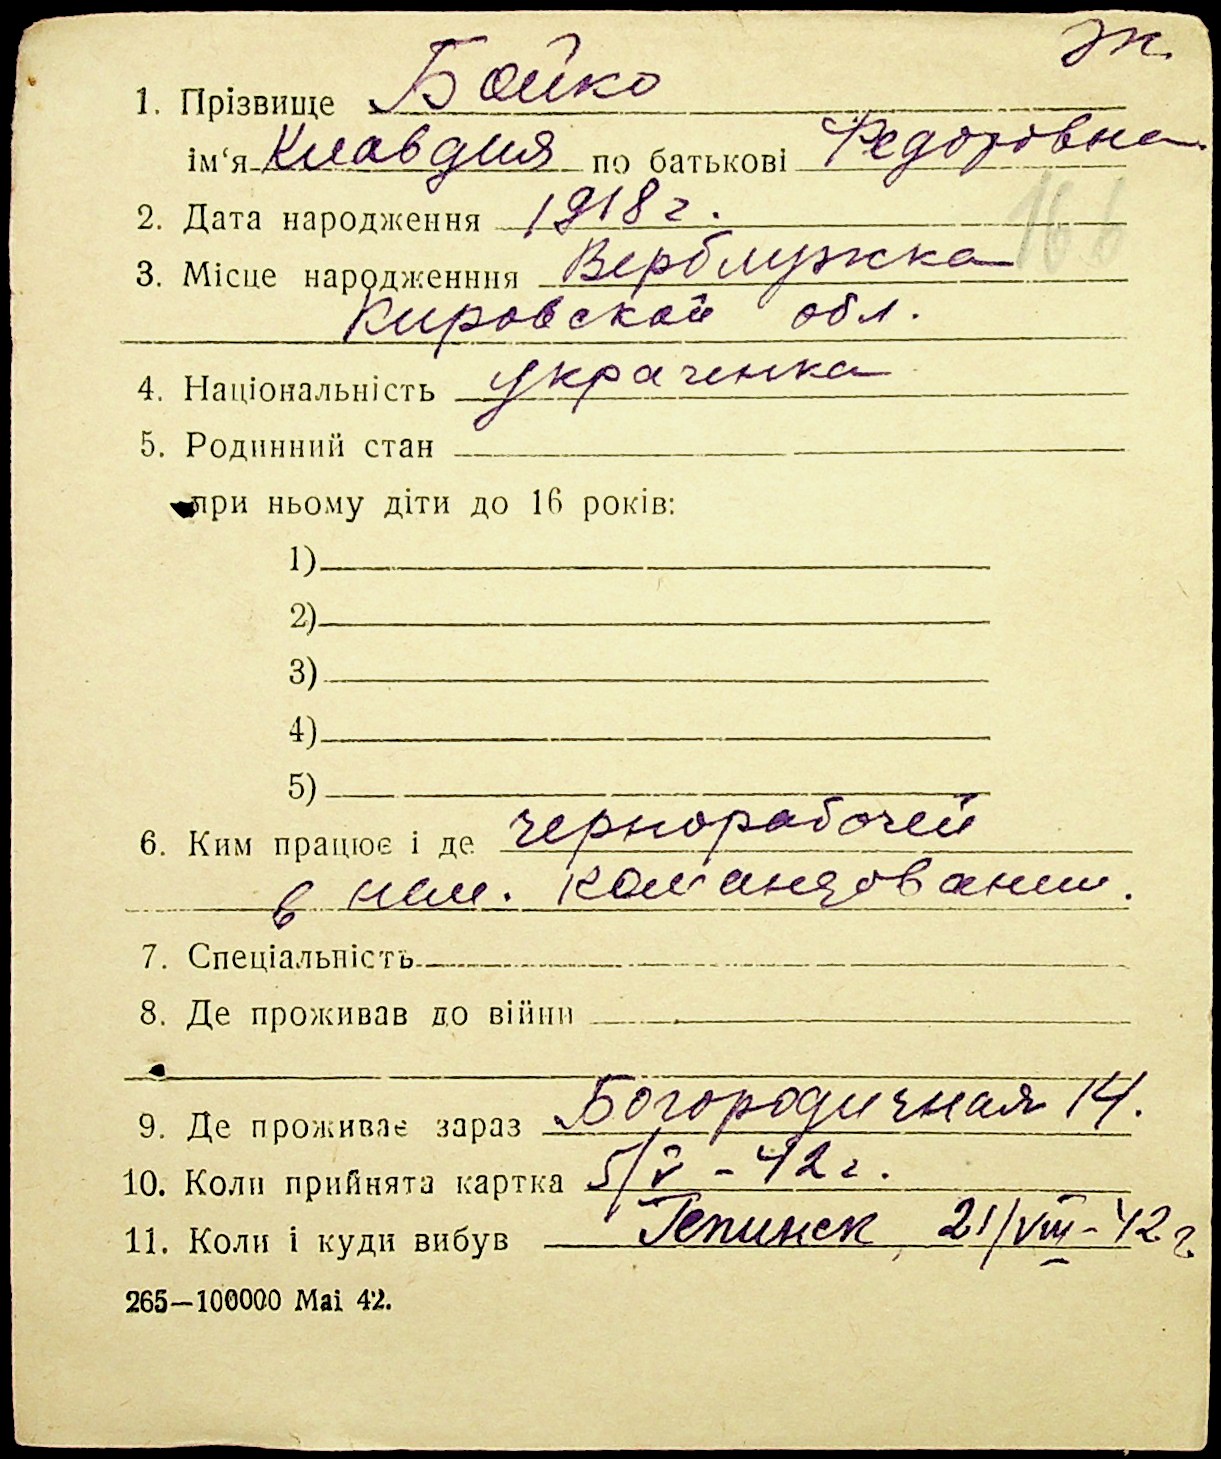 эк.
1. Прізвище Бойко
ім'я Клавдия по батькові Федоровна.
2. Дата народження 1918 г. 166
3. Місце народженння Верблужка
Кировской обл.
4. Національність украченка
5. Родинний стан
при ньому діти до 16 років:
1)
2)
3)
4)
5)
6. Ким працює і де чернорабочей
в нем. командовании.
7. Спеціальність
8. Де проживав до війни
9. Де проживає зараз Богородичная 14.
10. Коли прийнята картка 5/V - 42 г.
11. Коли і куди вибув 21/VIII - 42 г.
265—100000 Mai 42.